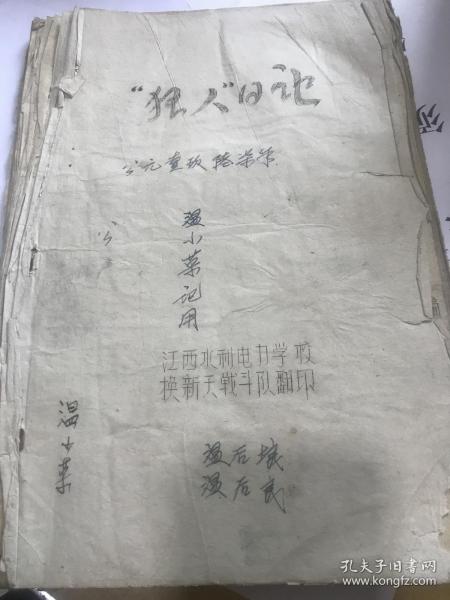 “狂人”日记
公元壹玖陆柒年
公
温小菜记用
江西水利电力学校
换新天战斗队翻印
温小菜
温后城
温后民
孔夫子旧书网
www.kongfz.com